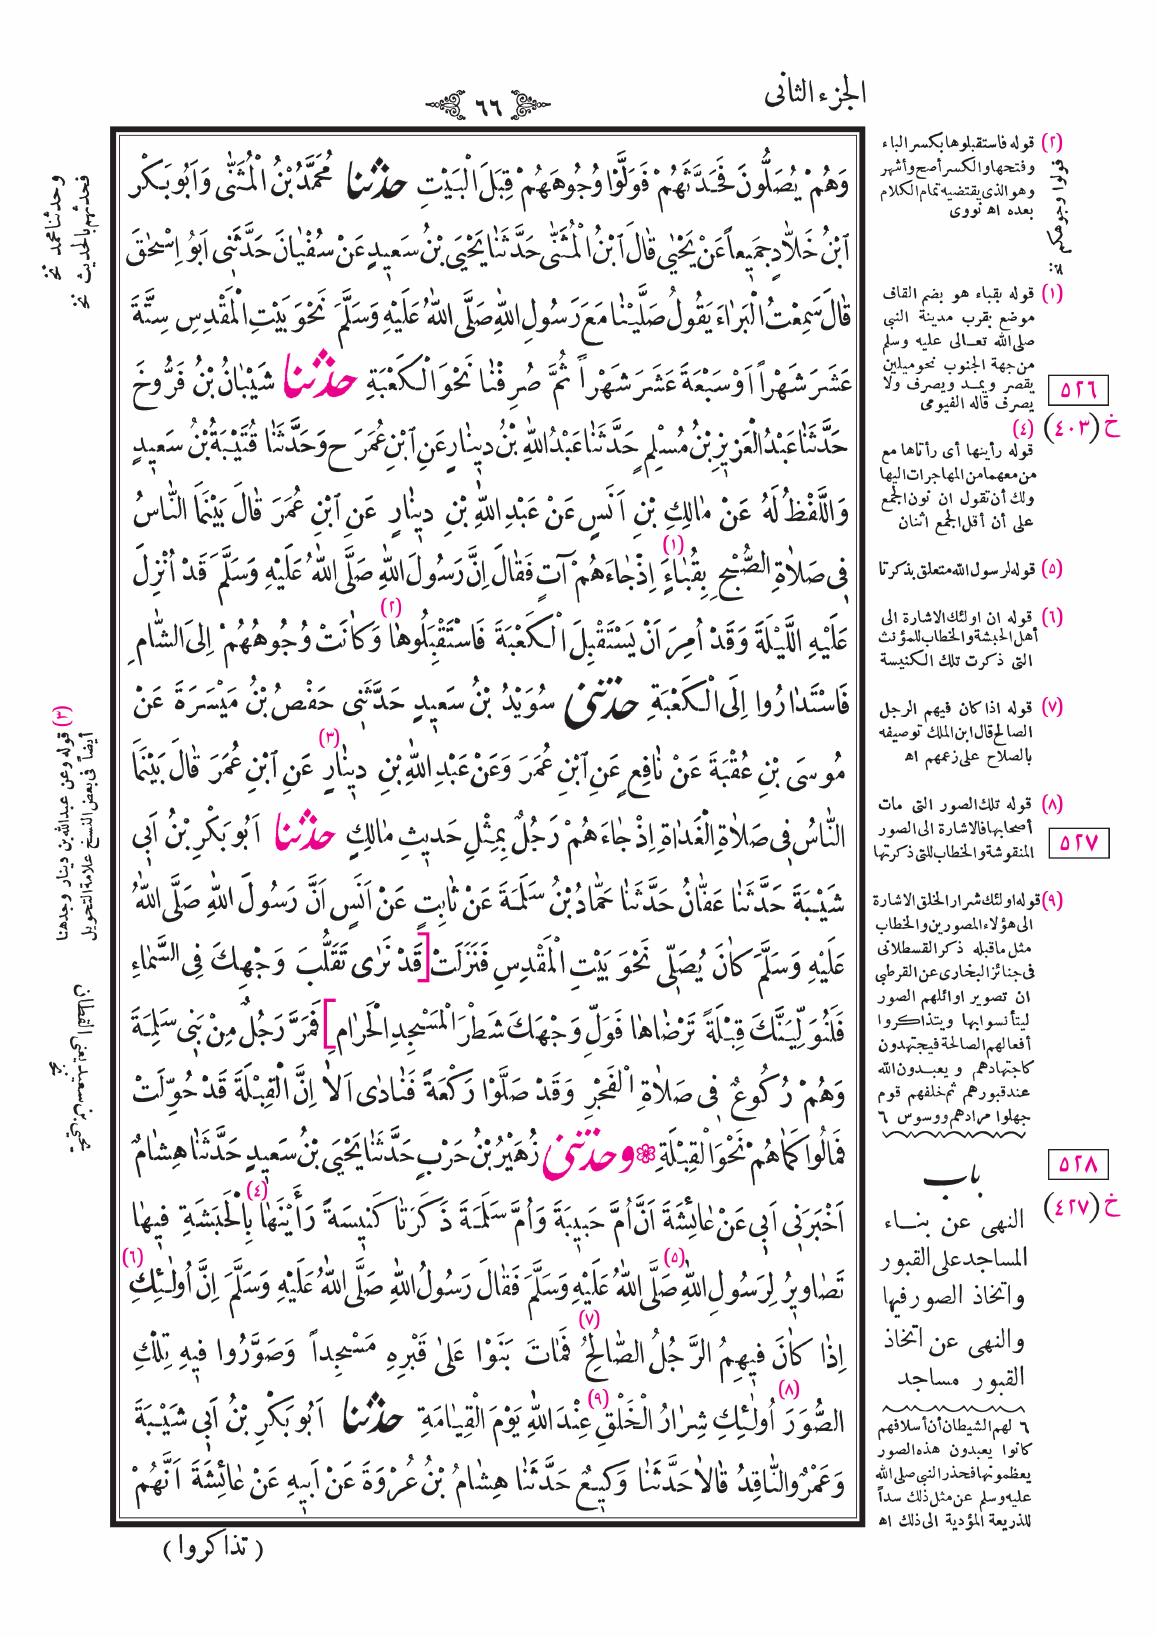 الجزء الثانى
٦٦
وَهُمْ يُصَلُّونَ فَحَدَّثَهُمْ فَوَلَّوْا وُجُوهَهُمْ قِبَلَ الْبَيْتِ حدثنا مُحَمَّدُ بْنُ الْمُثَنّٰى وَاَبُو بَكْرِ
ابْنُ خَلَّادٍ جَمِيعاً عَنْ يَحْيٰى قَالَ ابْنُ الْمُثَنّٰى حَدَّثَنَا يَحْيَى بْنُ سَعِيدٍ عَنْ سُفْيَانَ حَدَّثَنِى اَبُو اِسْحٰقَ
قَالَ سَمِعْتُ الْبَرَاءَ يَقُولُ صَلَّيْنَا مَعَ رَسُولِ اللّٰهِ صَلَّى اللّٰهُ عَلَيْهِ وَسَلَّمَ نَحْوَ بَيْتِ الْمَقْدِسِ سِتَّةَ
عَشَرَ شَهْراً اَوْ سَبْعَةَ عَشَرَ شَهْراً ثُمَّ صُرِفْنَا نَحْوَ الْكَعْبَةِ حدثنا شَيْبَانُ بْنُ فَرُّوخَ
حَدَّثَنَا عَبْدُ الْعَزِيزِ بْنُ مُسْلِمٍ حَدَّثَنَا عَبْدُ اللّٰهِ بْنُ دِينَارٍ عَنِ ابْنِ عُمَرَ ح وَحَدَّثَنَا قُتَيْبَةُ بْنُ سَعِيدٍ
وَاللَّفْظُ لَهُ عَنْ مَالِكِ بْنِ اَنَسٍ عَنْ عَبْدِ اللّٰهِ بْنِ دِينَارٍ عَنِ ابْنِ عُمَرَ قَالَ بَيْنَمَا النَّاسُ
فِى صَلَاةِ الصُّبْحِ بِقُبَاءَ (١) اِذْ جَاءَهُمْ آتٍ فَقَالَ اِنَّ رَسُولَ اللّٰهِ صَلَّى اللّٰهُ عَلَيْهِ وَسَلَّمَ قَدْ اُنْزِلَ
عَلَيْهِ اللَّيْلَةَ وَقَدْ اُمِرَ اَنْ يَسْتَقْبِلَ الْكَعْبَةَ فَاسْتَقْبِلُوهَا (٢) وَكَانَتْ وُجُوهُهُمْ اِلَى الشَّامِ
فَاسْتَدَارُوا اِلَى الْكَعْبَةِ حدثنى سُوَيْدُ بْنُ سَعِيدٍ حَدَّثَنِى حَفْصُ بْنُ مَيْسَرَةَ عَنْ
مُوسَى بْنِ عُقْبَةَ عَنْ نَافِعٍ عَنِ ابْنِ عُمَرَ وَعَنْ عَبْدِ اللّٰهِ بْنِ دِينَارٍ (٣) عَنِ ابْنِ عُمَرَ قَالَ بَيْنَمَا
النَّاسُ فِى صَلَاةِ الْغَدَاةِ اِذْ جَاءَهُمْ رَجُلٌ بِمِثْلِ حَدِيثِ مَالِكٍ حدثنا اَبُو بَكْرِ بْنُ اَبِى
شَيْبَةَ حَدَّثَنَا عَفَّانُ حَدَّثَنَا حَمَّادُ بْنُ سَلَمَةَ عَنْ ثَابِتٍ عَنْ اَنَسٍ اَنَّ رَسُولَ اللّٰهِ صَلَّى اللّٰهُ
عَلَيْهِ وَسَلَّمَ كَانَ يُصَلِّى نَحْوَ بَيْتِ الْمَقْدِسِ فَنَزَلَتْ [قَدْ نَرٰى تَقَلُّبَ وَجْهِكَ فِى السَّمَاءِ
فَلَنُوَلِّيَنَّكَ قِبْلَةً تَرْضَاهَا فَوَلِّ وَجْهَكَ شَطْرَ الْمَسْجِدِ الْحَرَامِ] فَمَرَّ رَجُلٌ مِنْ بَنِى سَلِمَةَ
وَهُمْ رُكُوعٌ فِى صَلَاةِ الْفَجْرِ وَقَدْ صَلَّوْا رَكْعَةً فَنَادٰى اَلَا اِنَّ الْقِبْلَةَ قَدْ حُوِّلَتْ
فَمَالُوا كَمَا هُمْ نَحْوَ الْقِبْلَةِ وحدثنى زُهَيْرُ بْنُ حَرْبٍ حَدَّثَنَا يَحْيَى بْنُ سَعِيدٍ حَدَّثَنَا هِشَامٌ
اَخْبَرَنِى اَبِى عَنْ عَائِشَةَ اَنَّ اُمَّ حَبِيبَةَ وَاُمَّ سَلَمَةَ ذَكَرَتَا كَنِيسَةً رَأَيْنَهَا (٤) بِالْحَبَشَةِ فِيهَا
تَصَاوِيرُ لِرَسُولِ اللّٰهِ (٥) صَلَّى اللّٰهُ عَلَيْهِ وَسَلَّمَ فَقَالَ رَسُولُ اللّٰهِ صَلَّى اللّٰهُ عَلَيْهِ وَسَلَّمَ اِنَّ اُولٰئِكِ (٦)
اِذَا كَانَ فِيهِمُ الرَّجُلُ الصَّالِحُ (٧) فَمَاتَ بَنَوْا عَلٰى قَبْرِهِ مَسْجِداً وَصَوَّرُوا فِيهِ تِلْكِ
الصُّوَرَ (٨) اُولٰئِكِ شِرَارُ الْخَلْقِ (٩) عِنْدَ اللّٰهِ يَوْمَ الْقِيَامَةِ حدثنا اَبُو بَكْرِ بْنُ اَبِى شَيْبَةَ
وَعَمْرٌو النَّاقِدُ قَالَا حَدَّثَنَا وَكِيعٌ حَدَّثَنَا هِشَامُ بْنُ عُرْوَةَ عَنْ اَبِيهِ عَنْ عَائِشَةَ اَنَّهُمْ
( تذاكروا )
(٢) قوله فاستقبلوها بكسر الباء
وفتحها والكسر أصح وأشهر
وهو الذى يقتضيه تمام الكلام
بعده اه نووى
فولوا وجوهكم نخ
(١) قوله بقباء هو بضم القاف
موضع بقرب مدينة النبى
صلى الله تعالى عليه وسلم
من جهة الجنوب نحو ميلين
يقصر ويمد ويصرف ولا
يصرف قاله الفيومى
٥٢٦
خ (٤٠٣)
(٤)
قوله رأينها أى رأتاها مع
من معهما من المهاجرات اليها
ولك أن تقول ان نون الجمع
على أن أقل الجمع اثنان
(٥) قوله لرسول الله متعلق بذكرتا
(٦) قوله ان اولئك الاشارة الى
أهل الحبشة والخطاب للمؤنث
التى ذكرت تلك الكنيسة
(٧) قوله اذا كان فيهم الرجل
الصالح قال ابن الملك توصيفه
بالصلاح على زعمهم اه
(٨) قوله تلك الصور التى مات
أصحابها فالاشارة الى الصور
المنقوشة والخطاب للتى ذكرتها
٥٢٧
(٩) قوله اولئك شرار الخلق الاشارة
الى هؤلاء المصورين والخطاب
مثل ما قبله ذكر القسطلانى
فى جنائز البخارى عن القرطبى
ان تصوير اوائلهم الصور
ليتأنسوا بها ويتذاكروا
أفعالهم الصالحة فيجتهدون
كاجتهادهم و يعبدون الله
عند قبورهم ثم خلفهم قوم
جهلوا مرادهم ووسوس ٦
باب
النهى عن بناء
المساجد على القبور
واتخاذ الصور فيها
والنهى عن اتخاذ
القبور مساجد
٥٢٨
خ (٤٢٧)
٦ لهم الشيطان أن أسلافهم
كانوا يعبدون هذه الصور
يعظمونها فحذر النبى صلى الله
عليه وسلم عن مثل ذلك سداً
للذريعة المؤدية الى ذلك اه
فحدثهم بالحديث نخ
وحدثنا محمد نخ
(٣) قوله وعن عبدالله بن دينار وجدهنا
أيضاً فى بعض النسخ علامة التحويل
يحيى بن سعيد يعنى القطان
نخ